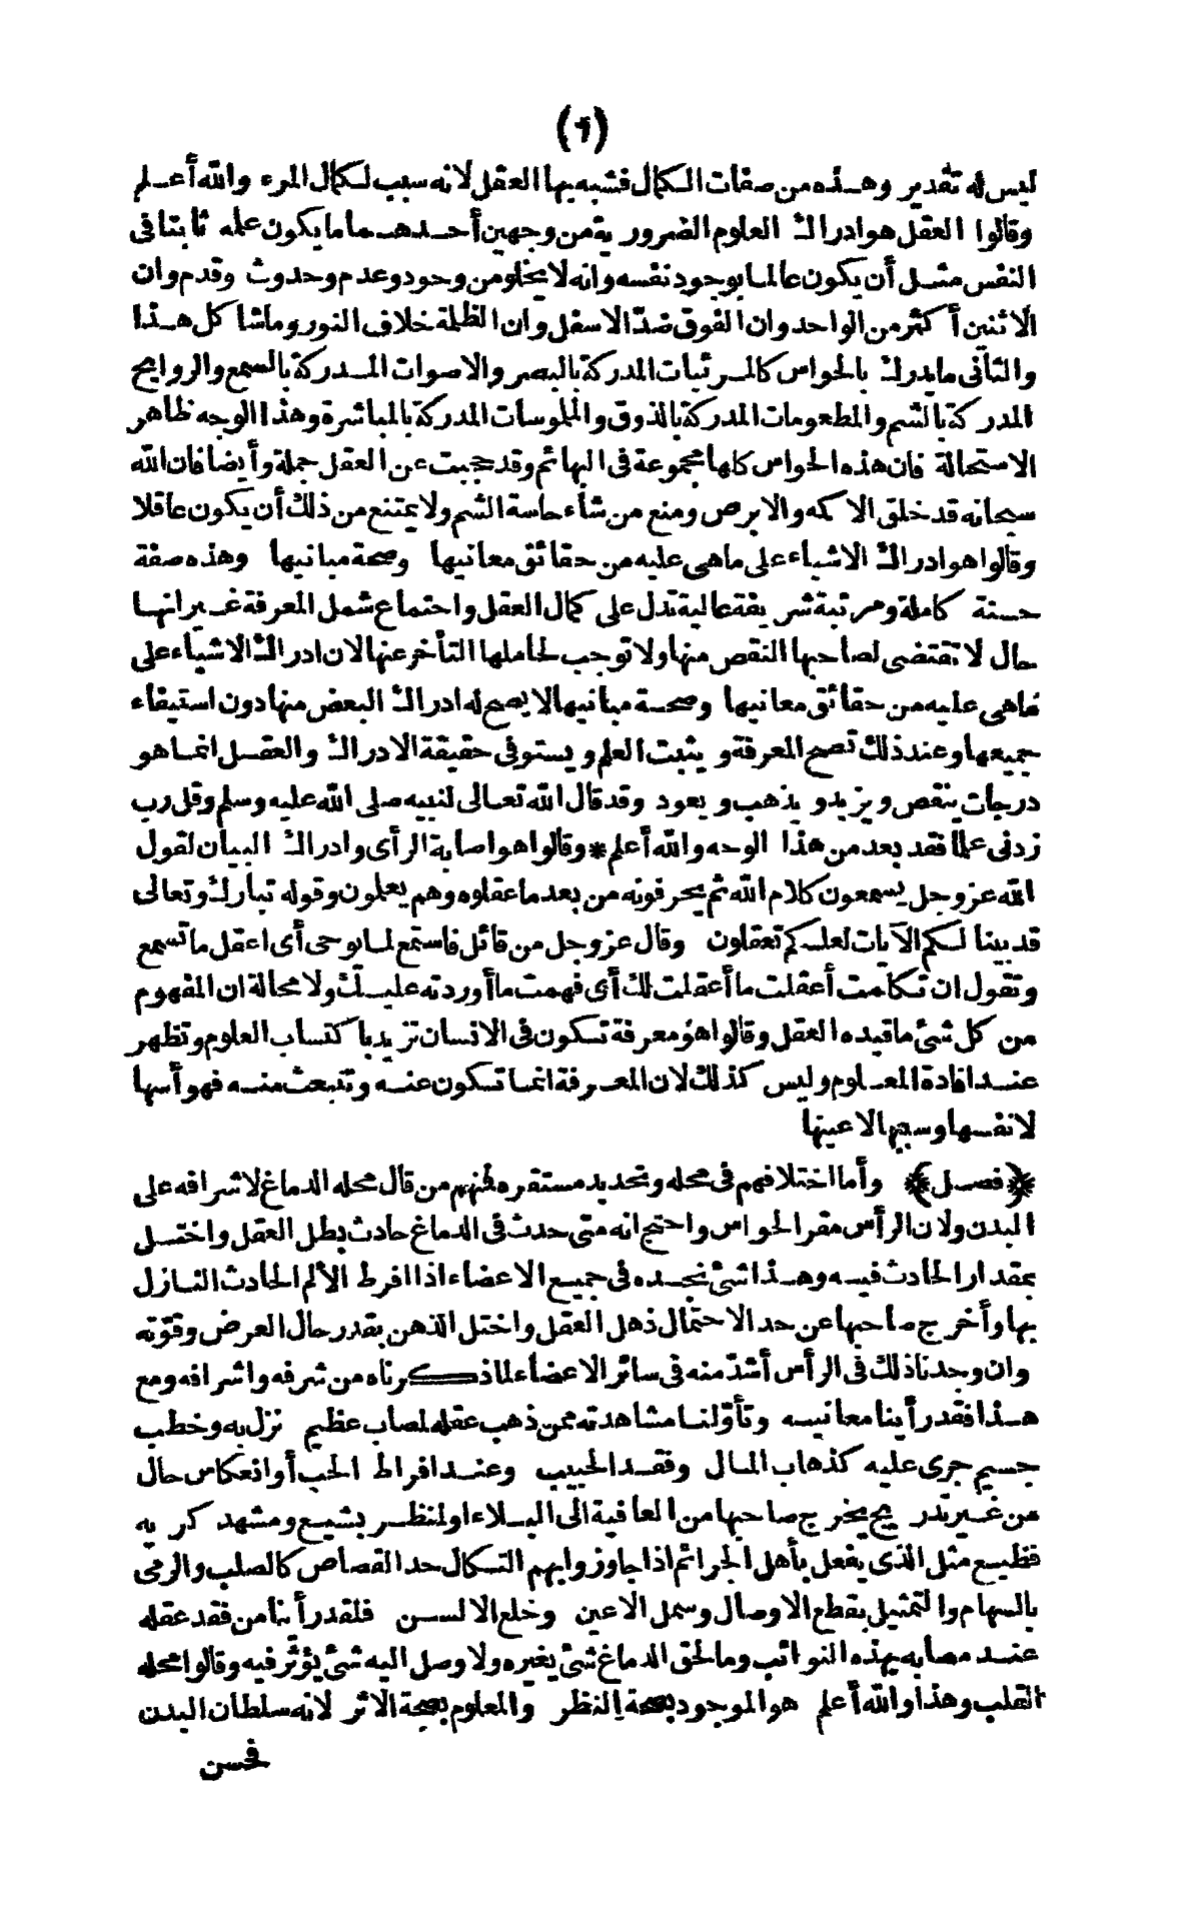 (٦)
ليس له تقدير وهذه من صفات الكمال فشبه بها العقل لانه سبب لكمال المرء والله أعلم
وقالوا العقل هو ادراك العلوم الضرورية من وجهين أحدهما ما يكون علمه ثابتا في
النفس مثل أن يكون عالما بوجود نفسه وانه لا يخلو من وجود وعدم وحدوث وقدم وان
الاثنين أكثر من الواحد وان الفوق ضدّ الاسفل وان الظلمة خلاف النور وماشا كل هذا
والثانى ما يدرك بالحواس كالمرئيات المدركة بالبصر والاصوات المدركة بالسمع والروايح
المدركة بالشم والمطعومات المدركة بالذوق والملموسات المدركة بالمباشرة وهذا الوجه ظاهر
الاستحالة فان هذه الحواس كلها مجموعة فى البهائم وقد حجبت عن العقل جملة وأيضا فان الله
سبحانه قد خلق الاكمه والابرص ومنع من شاء حاسة الشم ولا يمتنع من ذلك أن يكون عاقلا
وقالوا هو ادراك الاشياء على ماهى عليه من حقائق معانيها وصحة مبانيها وهذه صفة
حسنة كاملة ومرتبة شريفة عالية تدل على كمال العقل واجتماع شمل المعرفة غير انها
حال لا تقتضى لصاحبها النقص منها ولا توجب لحاملها التأخر عنها لان ادراك الاشياء على
ماهى عليه من حقائق معانيها وصحة مبانيها لا يصح له ادراك البعض منها دون استيفاء
جميعها وعند ذلك تصح المعرفة ويثبت العلم ويستوفى حقيقة الادراك والعقل انما هو
درجات ينقص ويزيد ويذهب ويعود وقد قال الله تعالى لنبيه صلى الله عليه وسلم وقل رب
زدنى علما فقد بعد من هذا الوجه والله أعلم * وقالوا هو اصابة الرأى وادراك البيان لقول
الله عز وجل يسمعون كلام الله ثم يحرفونه من بعد ما عقلوه وهم يعلمون وقوله تبارك وتعالى
قد بينا لكم الآيات لعلكم تعقلون وقال عز وجل من قائل فاستمع لما يوحى أى اعقل ما تسمع
وتقول ان تكلمت أعقلت ما أعقلت لك أى فهمت ما أوردته عليك ولا محالة ان المفهوم
من كل شئ ما قيده العقل وقالوا هو معرفة تسكون فى الانسان تزيد با كتساب العلوم وتظهر
عند افادة المعلوم وليس كذلك لان المعرفة انما تسكون عنه وتنبعث منه فهو أسها
لا نفسها وسببها لا عينها
﴿فصل﴾ وأما اختلافهم فى محله وتحديد مستقره فمنهم من قال محله الدماغ لاشرافه على
البدن ولان الرأس مقر الحواس واحتج انه متى حدث فى الدماغ حادث بطل العقل واختل
بمقدار الحادث فيه وهذا شئ نجده فى جميع الاعضاء اذا افرط الألم الحادث النازل
بها وأخرج صاحبها عن حد الاحتمال ذهل العقل واختل الذهن بقدر حال العرض وقوّته
وان وجدنا ذلك فى الرأس أشدّ منه فى سائر الاعضاء لما ذكرناه من شرفه واشرافه ومع
هذا فقد رأينا معانيه وتأوّلنا مشاهدته ممن ذهب عقله لمصاب عظيم نزل به وخطب
جسيم جرى عليه كذهاب المال وفقد الحبيب وعند افراط الحب أو انعكاس حال
من غير تدريج يخرج صاحبها من العافية الى البلاء او لمنظر بشيع ومشهد كريه
فظيع مثل الذى يفعل بأهل الجرائم اذا جاوزوا بهم التسكال حد القصاص كالصلب والرمى
بالسهام والتمثيل بقطع الاوصال وسمل الاعين وخلع الالسن فلقد رأينا من فقد عقله
عند مصابه بهذه النوائب وما لحق الدماغ شئ يغيره ولا وصل اليه شئ يؤثر فيه وقالوا محله
القلب وهذا والله أعلم هو الموجود بصحة النظر والمعلوم بصحة الاثر لانه سلطان البدن
فحسن